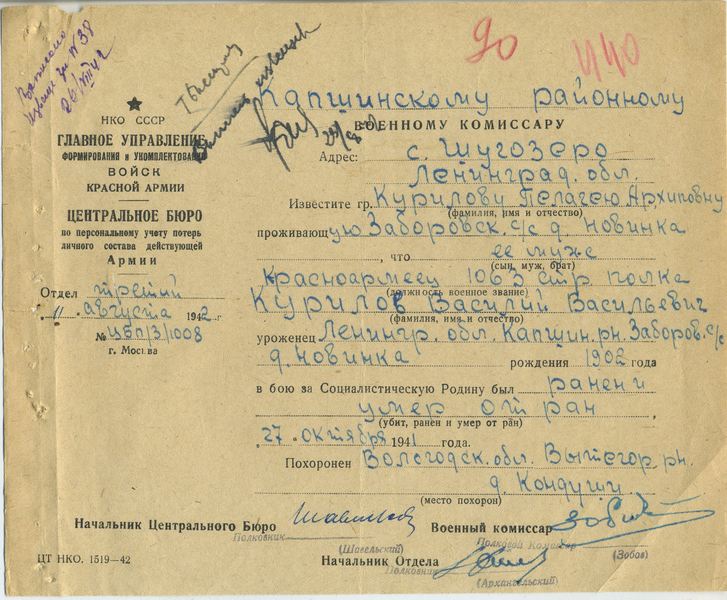 Выписано
извещ. за № 38
26/VIII 42
90
440
НКО СССР
ГЛАВНОЕ УПРАВЛЕНИЕ
ФОРМИРОВАНИЯ и УКОМПЛЕКТОВАНИЯ
ВОЙСК
КРАСНОЙ АРМИИ
ЦЕНТРАЛЬНОЕ БЮРО
по персональному учету потерь
личного состава действующей
Армии
Отдел третий
"11" августа 1942 г.
№ ЦБП/3/1008
г. Москва
Капшинскому районному
ВОЕННОМУ КОМИССАРУ
Адрес: с. Шугозеро
Ленинград. обл.
Известите гр. Курилову Пелагею Архиповну
(фамилия, имя и отчество)
проживающую Заборовск. с/с д. Новинка
, что ее муж
(сын, муж, брат)
Красноармеец 1063 стр. полка
(должность военное звание)
Курилов Василий Васильевич
(фамилия, имя и отчество)
уроженец Ленингр. обл. Капшин. рн. Заборов. с/с
д. Новинка рождения 1902 года
в бою за Социалистическую Родину был ранен и
умер от ран
(убит, ранен и умер от ран)
27 октября 1941 года.
Похоронен Вологодск. обл. Вытегор. рн.
д. Кондуши
(место похорон)
Начальник Центрального Бюро
Полковник
(Шавельский)
Военный комиссар
Полковой Комиссар
(Зобов)
Начальник Отдела
Полковник
(Архангельский)
ЦТ НКО. 1519—42